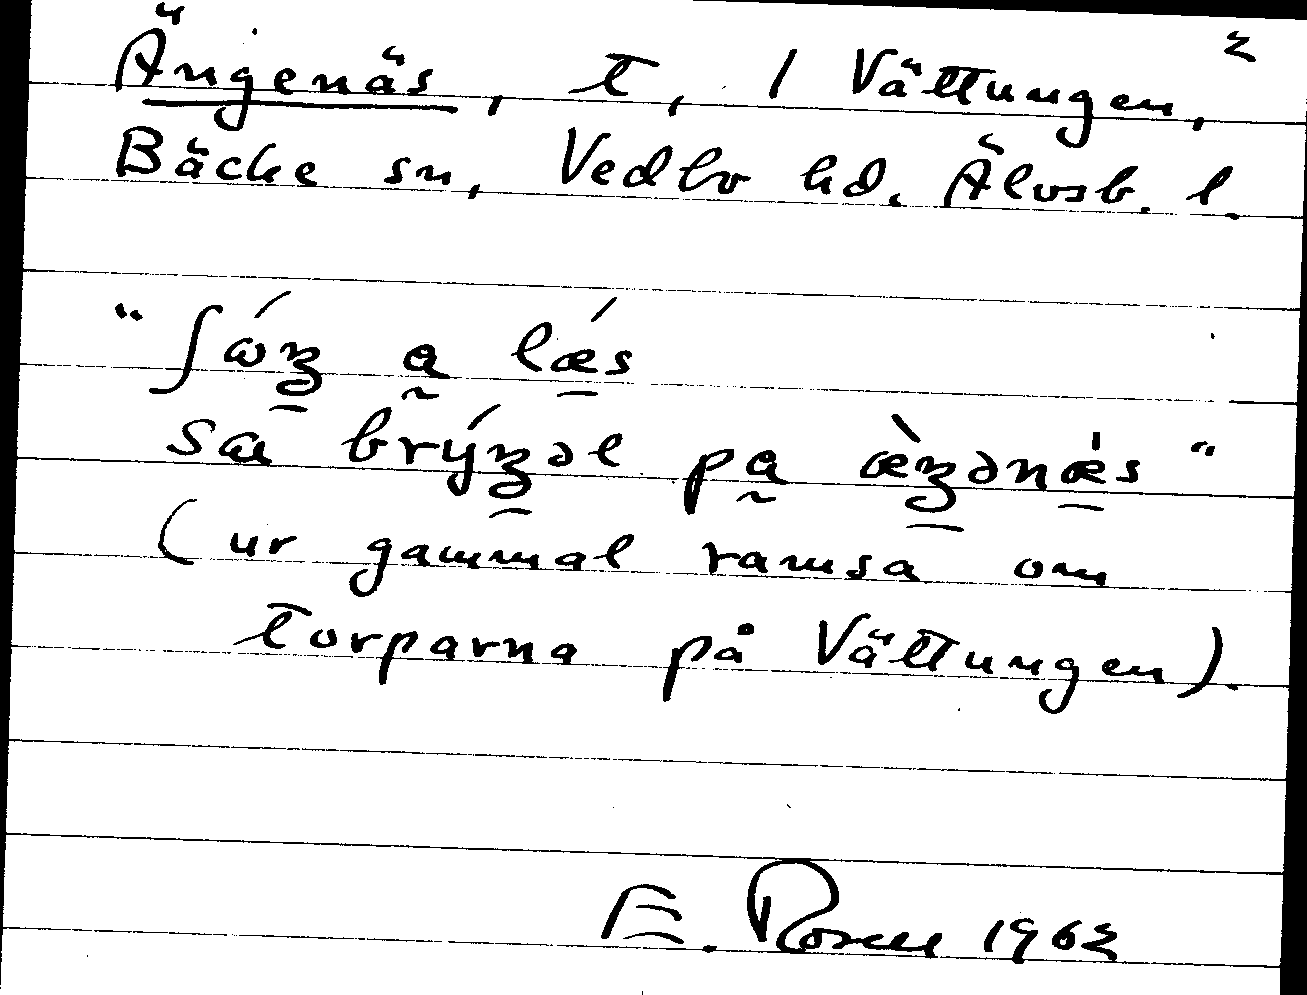 2
Ängenäs, t, 1 Vättungen,
Bäcke sn, Vedbo hd. Älvsb. l.
"ʃώʒ a læs
sa brýʒəl pa æ̀ʒənæs"
(ur gammal ramsa om
torparna på Vättungen).
E. Rosell 1962